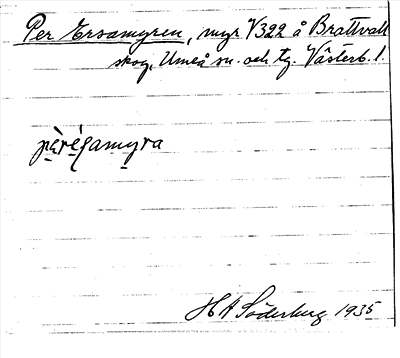 Per Ersamyren, myr V322 å Brattvall
skog, Umeå sn. och tg. Västerb. l.
pèrè̱samy̱ra
H A Söderberg 1935